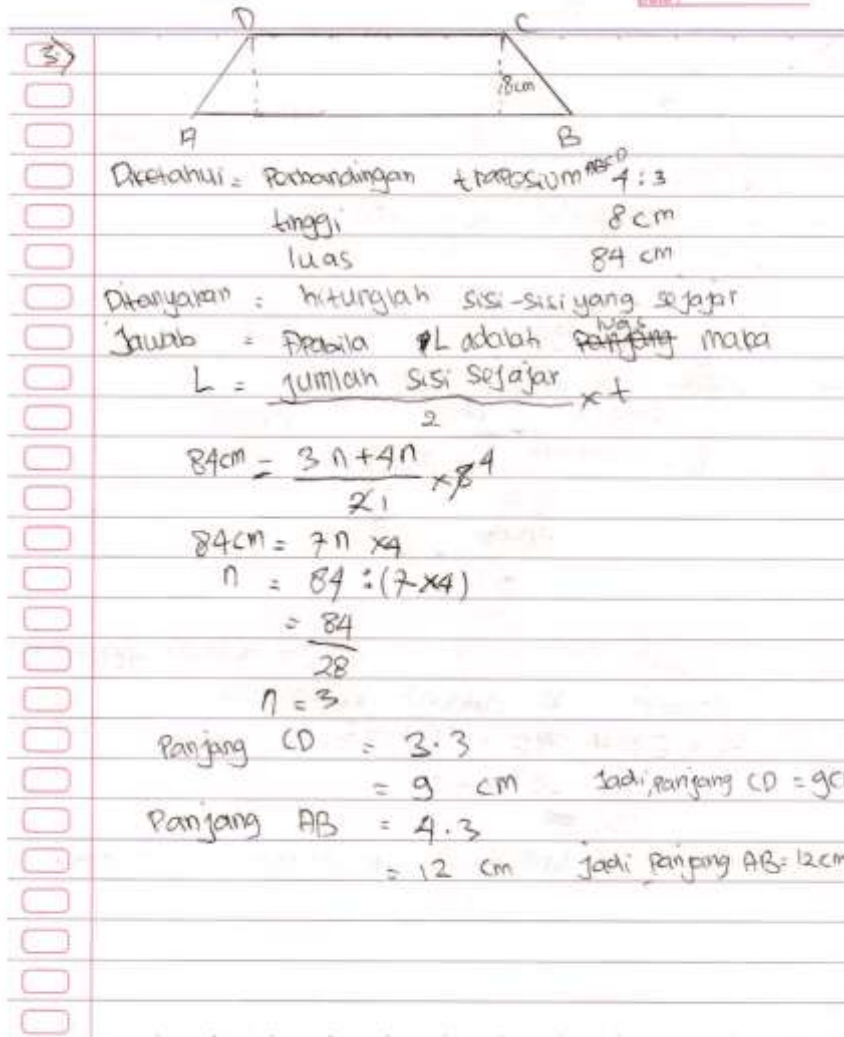 3)
D C
8cm
A B
Diketahui = Perbandingan trapesium ABCD 4:3
tinggi 8 cm
luas 84 cm
Ditanyakan = hitunglah sisi-sisi yang sejajar
Jawab = Apabila L adalah luas maka
L = jumlah sisi sejajar / 2 × t
84cm = 3n+4n / 2 1 × 8 4
84cm = 7n ×4
n = 84 : (7×4)
= 84 / 28
n = 3
Panjang CD = 3.3
= 9 cm Jadi, panjang CD = 9c
Panjang AB = 4.3
= 12 cm Jadi panjang AB = 12cm